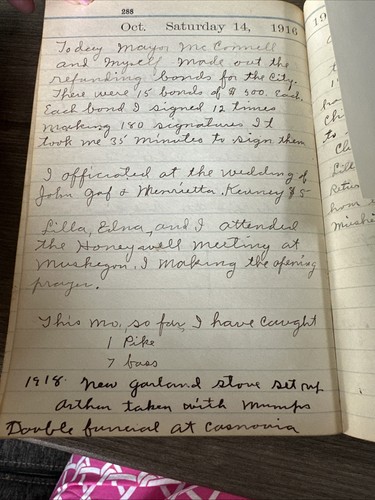 288
Oct. Saturday 14, 1916
Today Mayor McConnell
and myself made out the
refunding bonds for the City.
There were 15 bonds of $500. Each.
Each bond I signed 12 times
making 180 signatures. It
took me 35 minutes to sign them
I officiated at the wedding of
John Gaf & Henrietta Kenney $5
Lilla, Edna, and I attended
the Honeywell meeting at
Muskegon. I making the opening
prayer.
This mo. so far, I have caught
1 Pike
7 bass
1918. New Garland stove set up
Arthur taken with Mumps
Double funeral at Casnovia